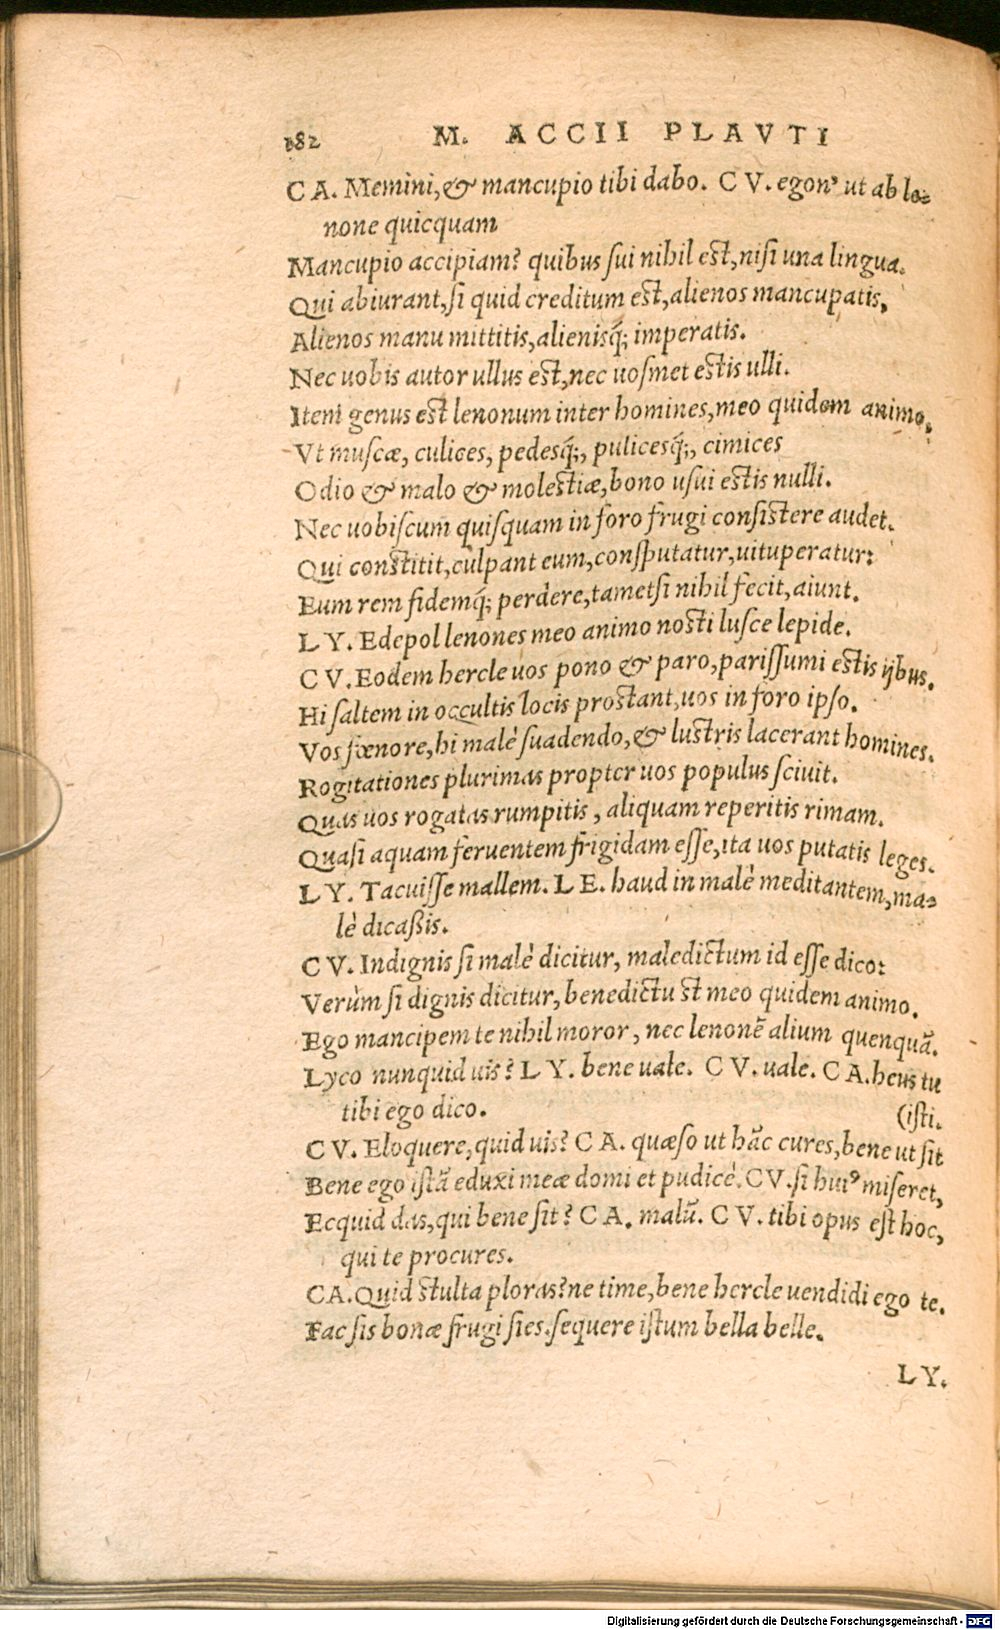 182 M. ACCII PLAVTI
CA. Memini, & mancupio tibi dabo. CV. egon' ut ab le-
none quicquam
Mancupio accipiam? quibus sui nihil est, nisi una lingua.
Qui abiurant, si quid creditum est, alienos mancupatis,
Alienos manu mittitis, alienisq́; imperatis.
Nec uobis autor ullus est, nec uosmet estis ulli.
Item genus est lenonum inter homines, meo quidem animo,
Vt muscæ, culices, pedesq́;, pulicesq́;, cimices
Odio & malo & molestiæ, bono usui estis nulli.
Nec uobiscum quisquam in foro frugi consistere audet.
Qui constitit, culpant eum, consputatur, uituperatur:
Eum rem fidemq́; perdere, tametsi nihil fecit, aiunt.
LY. Edepol lenones meo animo nosti lusce lepide.
CV. Eodem hercle uos pono & paro, parissumi estis ijbus.
Hi saltem in occultis locis prostant, uos in foro ipso.
Vos fœnore, hi malè suadendo, & lustris lacerant homines.
Rogitationes plurimas propter uos populus sciuit.
Quas uos rogatas rumpitis, aliquam reperitis rimam.
Quasi aquam feruentem frigidam esse, ita uos putatis leges.
LY. Tacuisse mallem. LE. haud in malè meditantem, ma-
lè dicaßis.
CV. Indignis si malè dicitur, maledictum id esse dico:
Verùm si dignis dicitur, benedictu st meo quidem animo.
Ego mancipem te nihil moror, nec lenonē alium quenquā.
Lyco nunquid uis? LY. bene uale. CV. uale. CA. heus tu
tibi ego dico. (isti.
CV. Eloquere, quid uis? CA. quæso ut hāc cures, bene ut sit
Bene ego istā eduxi meæ domi et pudicè. CV. si huiꝰ miseret,
Ecquid das, qui bene sit? CA. malū. CV. tibi opus est hoc,
qui te procures.
CA. Quid stulta ploras? ne time, bene hercle uendidi ego te.
Fac sis bonæ frugi sies. sequere istum bella belle.
LY.
Digitalisierung gefördert durch die Deutsche Forschungsgemeinschaft - DFG